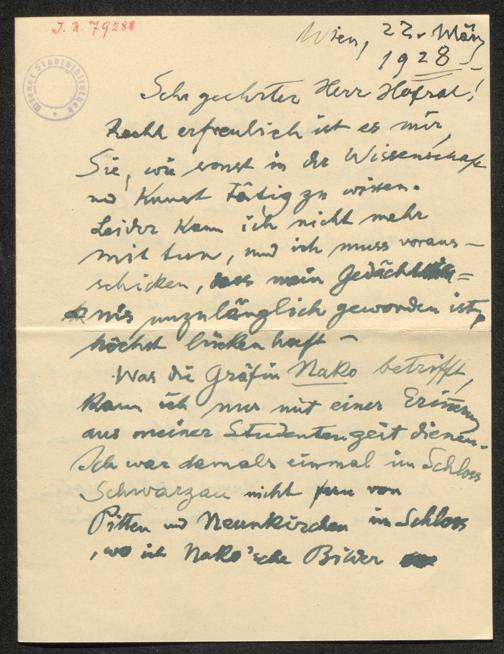 J. N. 79288
Wiener Stadtbibliothek
Wien, 22. März
1928
Sehr geehrter Herr Hofrat!
Recht erfreulich ist es mir,
Sie, wie sonst in der Wissenschaft
und Kunst tätig zu wissen.
Leider kann ich nicht mehr
mit tun, und ich muss voraus-
schicken, dass mein Gedächt=
nis unzulänglich geworden ist,
höchst lückenhaft –
Was die Gräfin Nako betrifft,
kann ich nur mit einer Erinnerung
aus meiner Studentenzeit dienen.
Ich war damals einmal im Schloss
Schwarzau nicht fern von
Pitten und Neunkirchen im Schloss
, wo ich Nako'sche Bilder